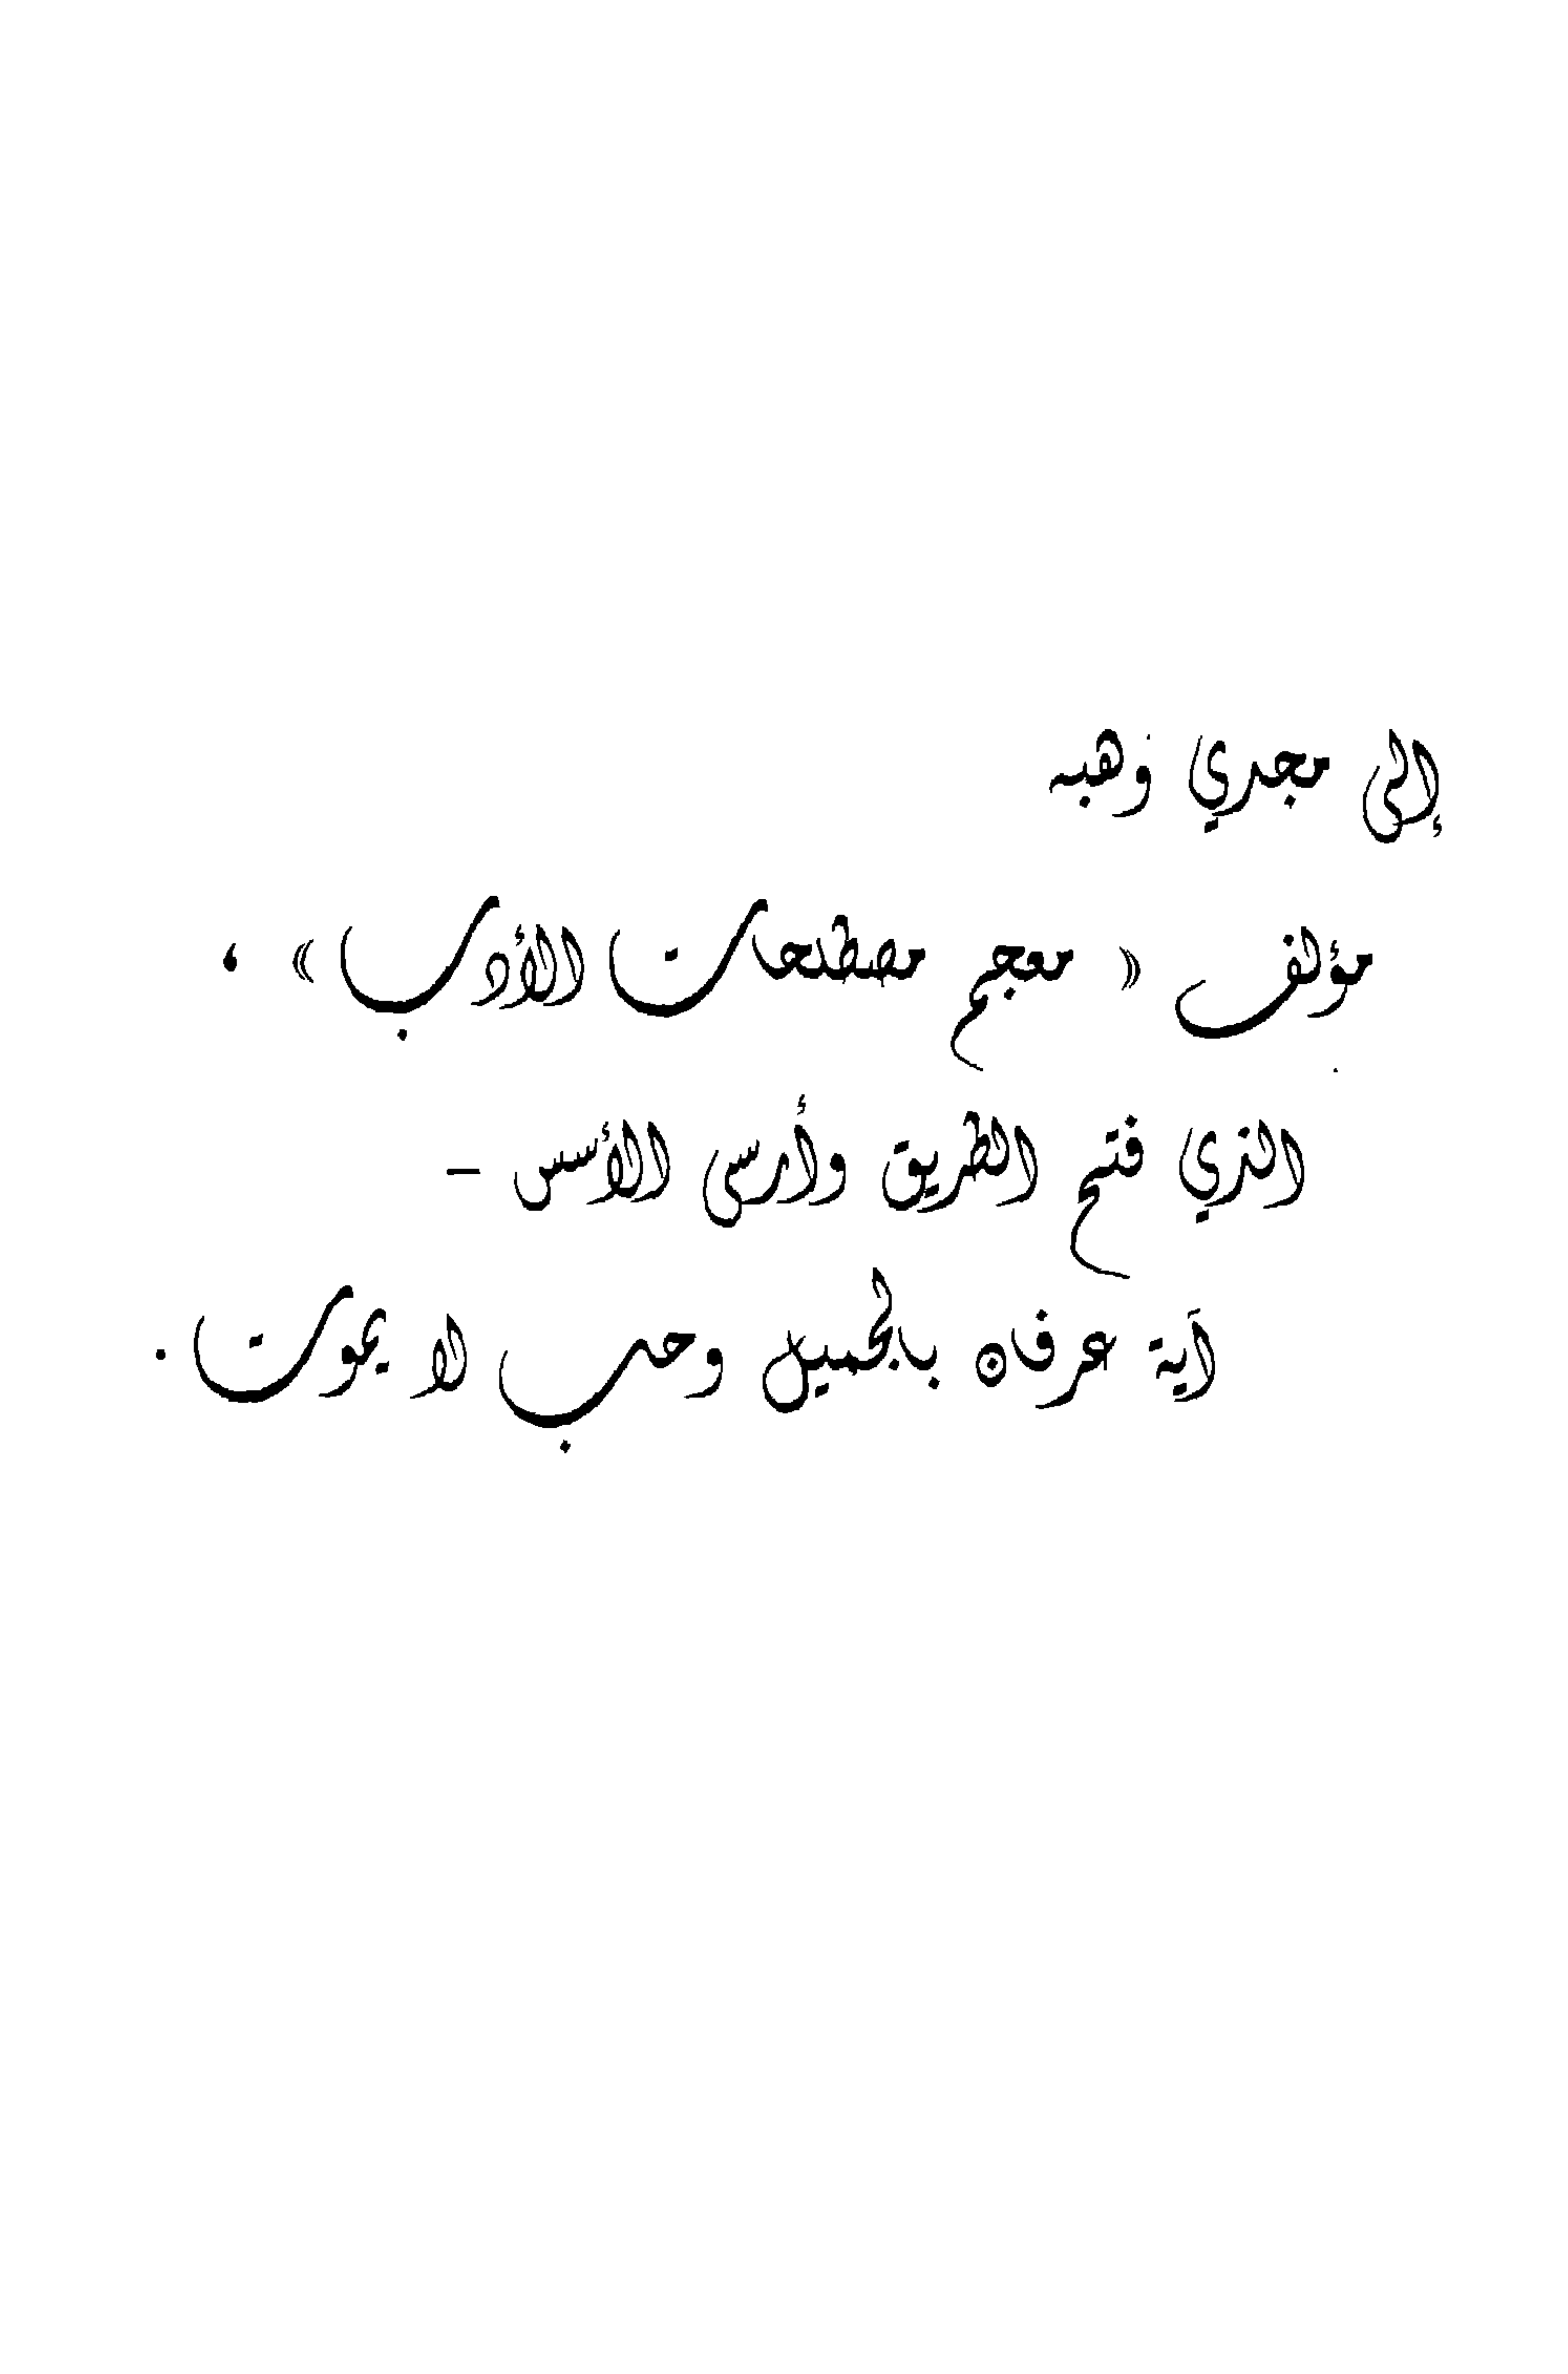 إلى مجدي وهبه
مؤلف « معجم مصطلحات الأدب » ،
الذي فتح الطريق وأرسى الأسس –
آية عرفان بالجميل وحب لا يموت .